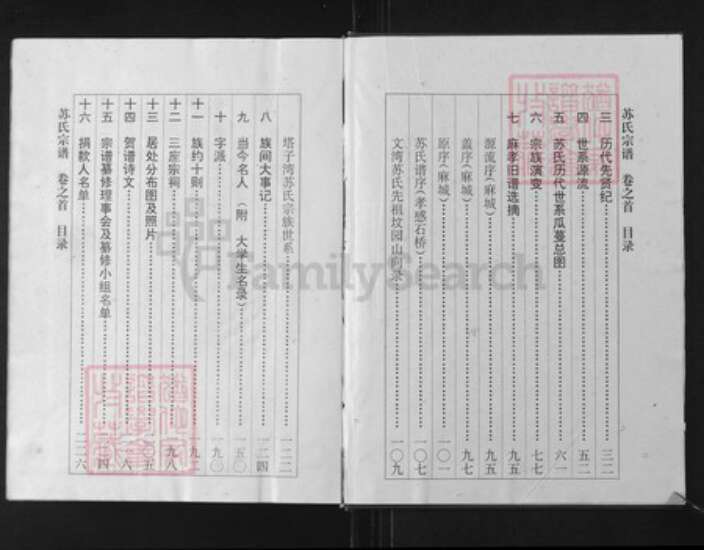 苏氏宗谱 卷之首 目录
三 历代先贤纪 三二
四 世系源流 五二
五 苏氏历代世系瓜蔓总图 六一
六 宗族演变 七七
七 麻孝旧谱选摘 九五
源流序(麻城) 九五
盖序(麻城) 九七
原序(麻城) 一〇一
苏氏谱序(孝感石桥) 一〇七
文湾苏氏先祖坟园山向录 一〇九
塔子湾苏氏宗族世系 一二二
八 族间大事记 一二四
九 当今名人 (附 大学生名录) 一五〇
十 字派 一九〇
十一 族约十则
十二 三座宗祠 一九八
十三 居处分布图及照片
十四 贺谱诗文
十五 宗谱纂修理事会及纂修小组名单
十六 捐款人名单 二二六
苏氏宗谱 卷之首 目录
FamilySearch